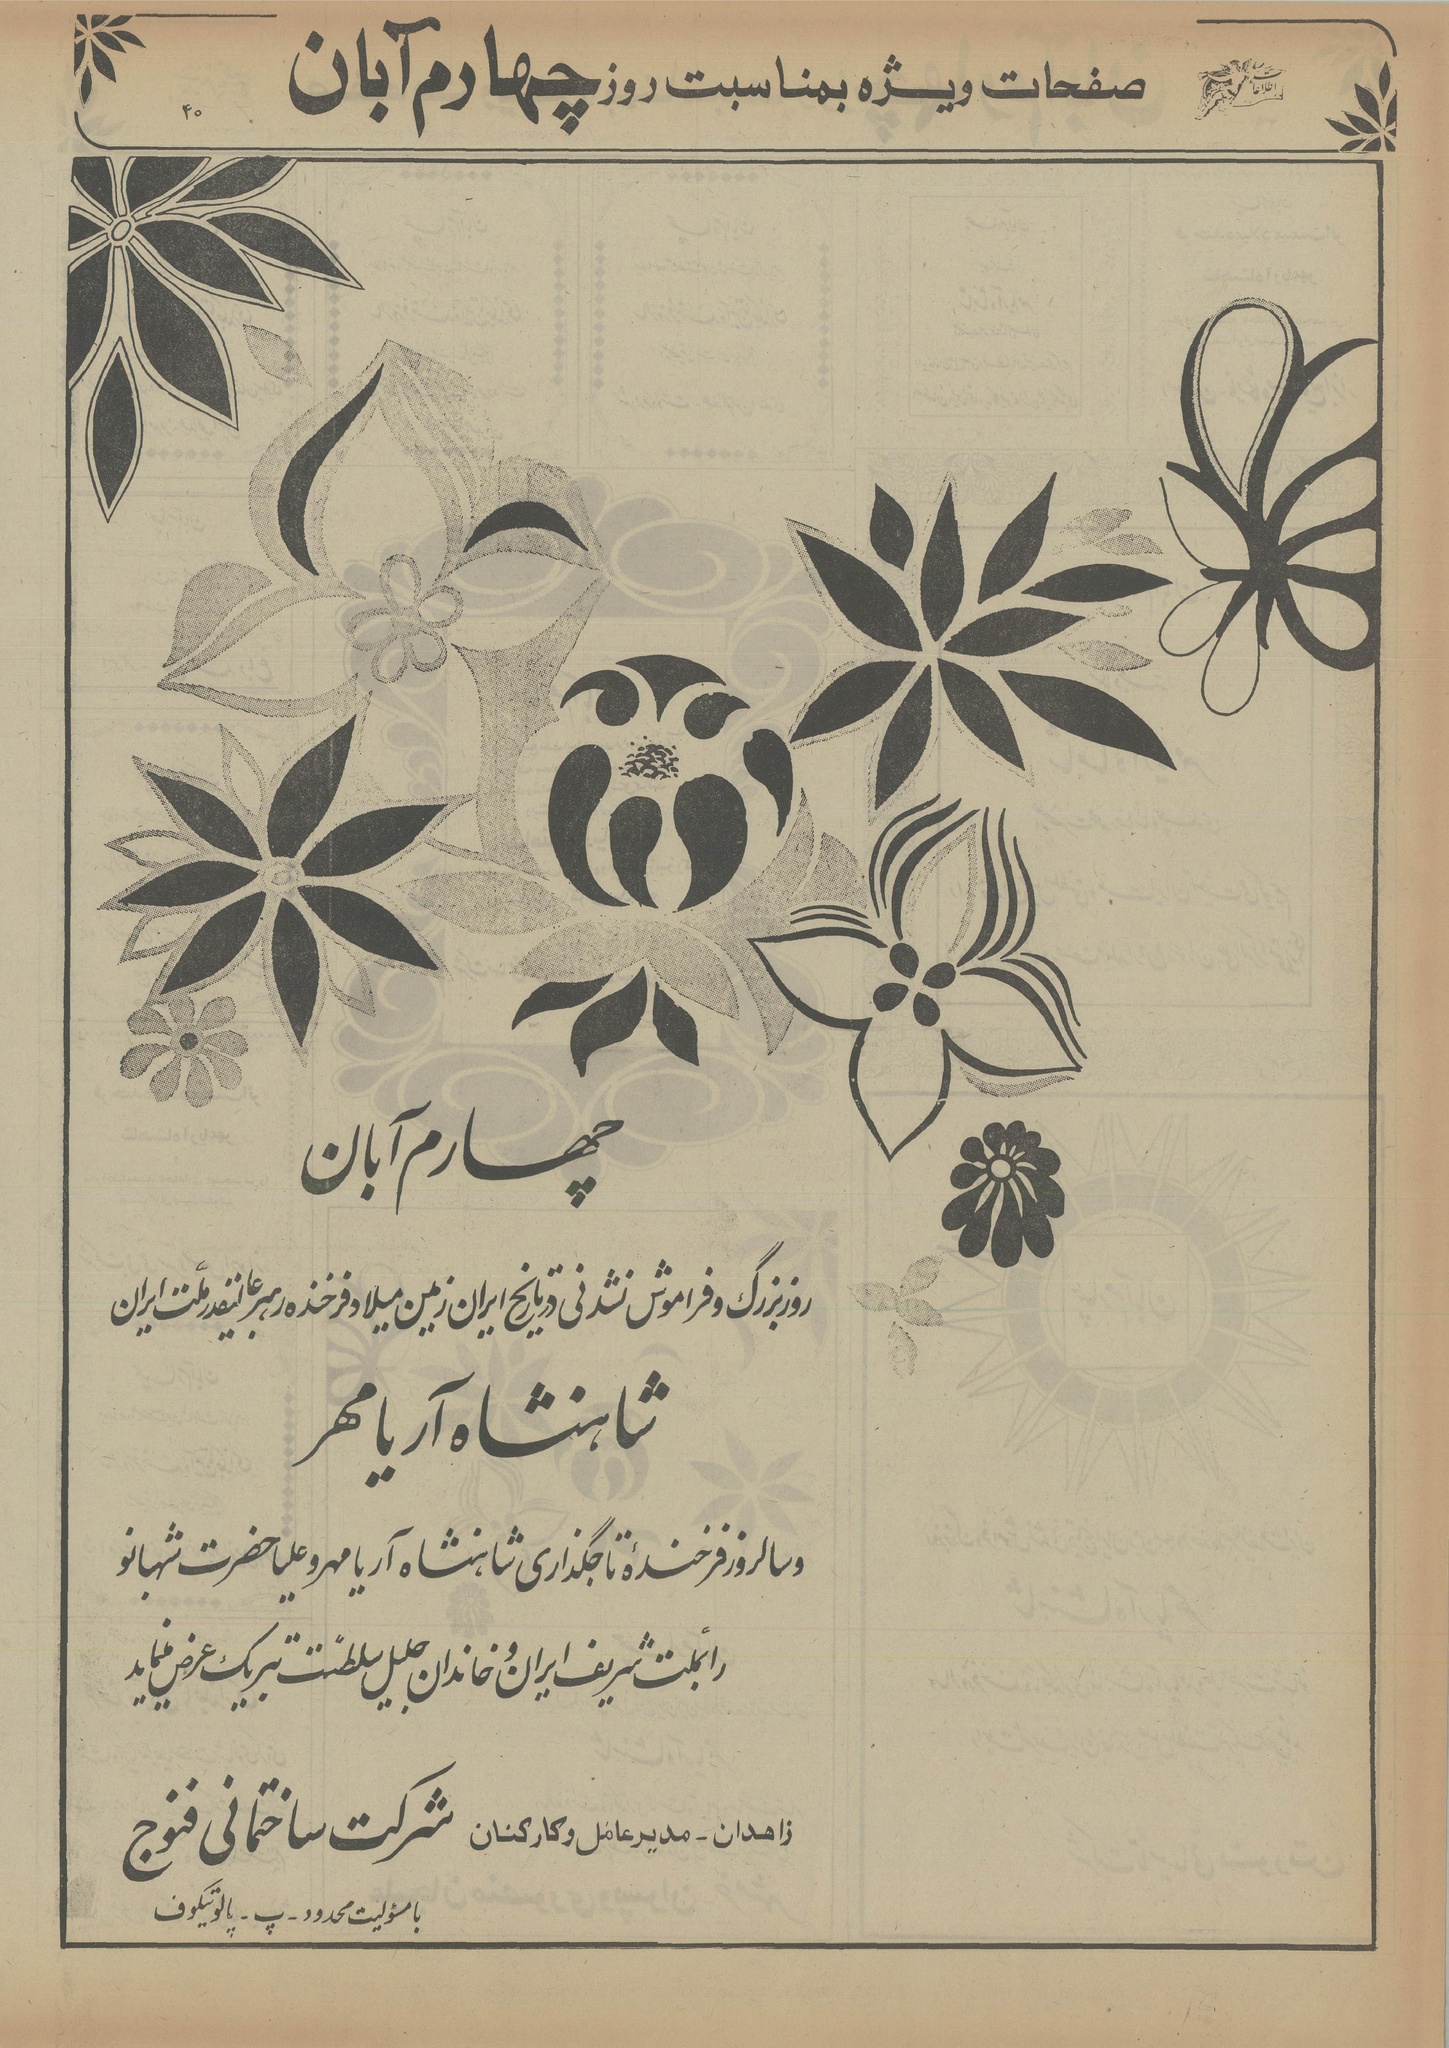 صفحات ویژه بمناسبت روز چهارم آبان
۴۰
چهارم آبان
روز بزرگ و فراموش نشدنی در تاریخ ایران زمین میلاد فرخنده رهبر عالیقدر ملت ایران
شاهنشاه آریامهر
و سالروز فرخندهٔ تاجگذاری شاهنشاه آریامهر و علیاحضرت شهبانو
را بملت شریف ایران و خاندان جلیل سلطنت تبریک عرض مینماید
زاهدان - مدیرعامل و کارکنان شرکت ساختمانی فنوج
با مسؤلیت محدود - پ - پالوتیکوف